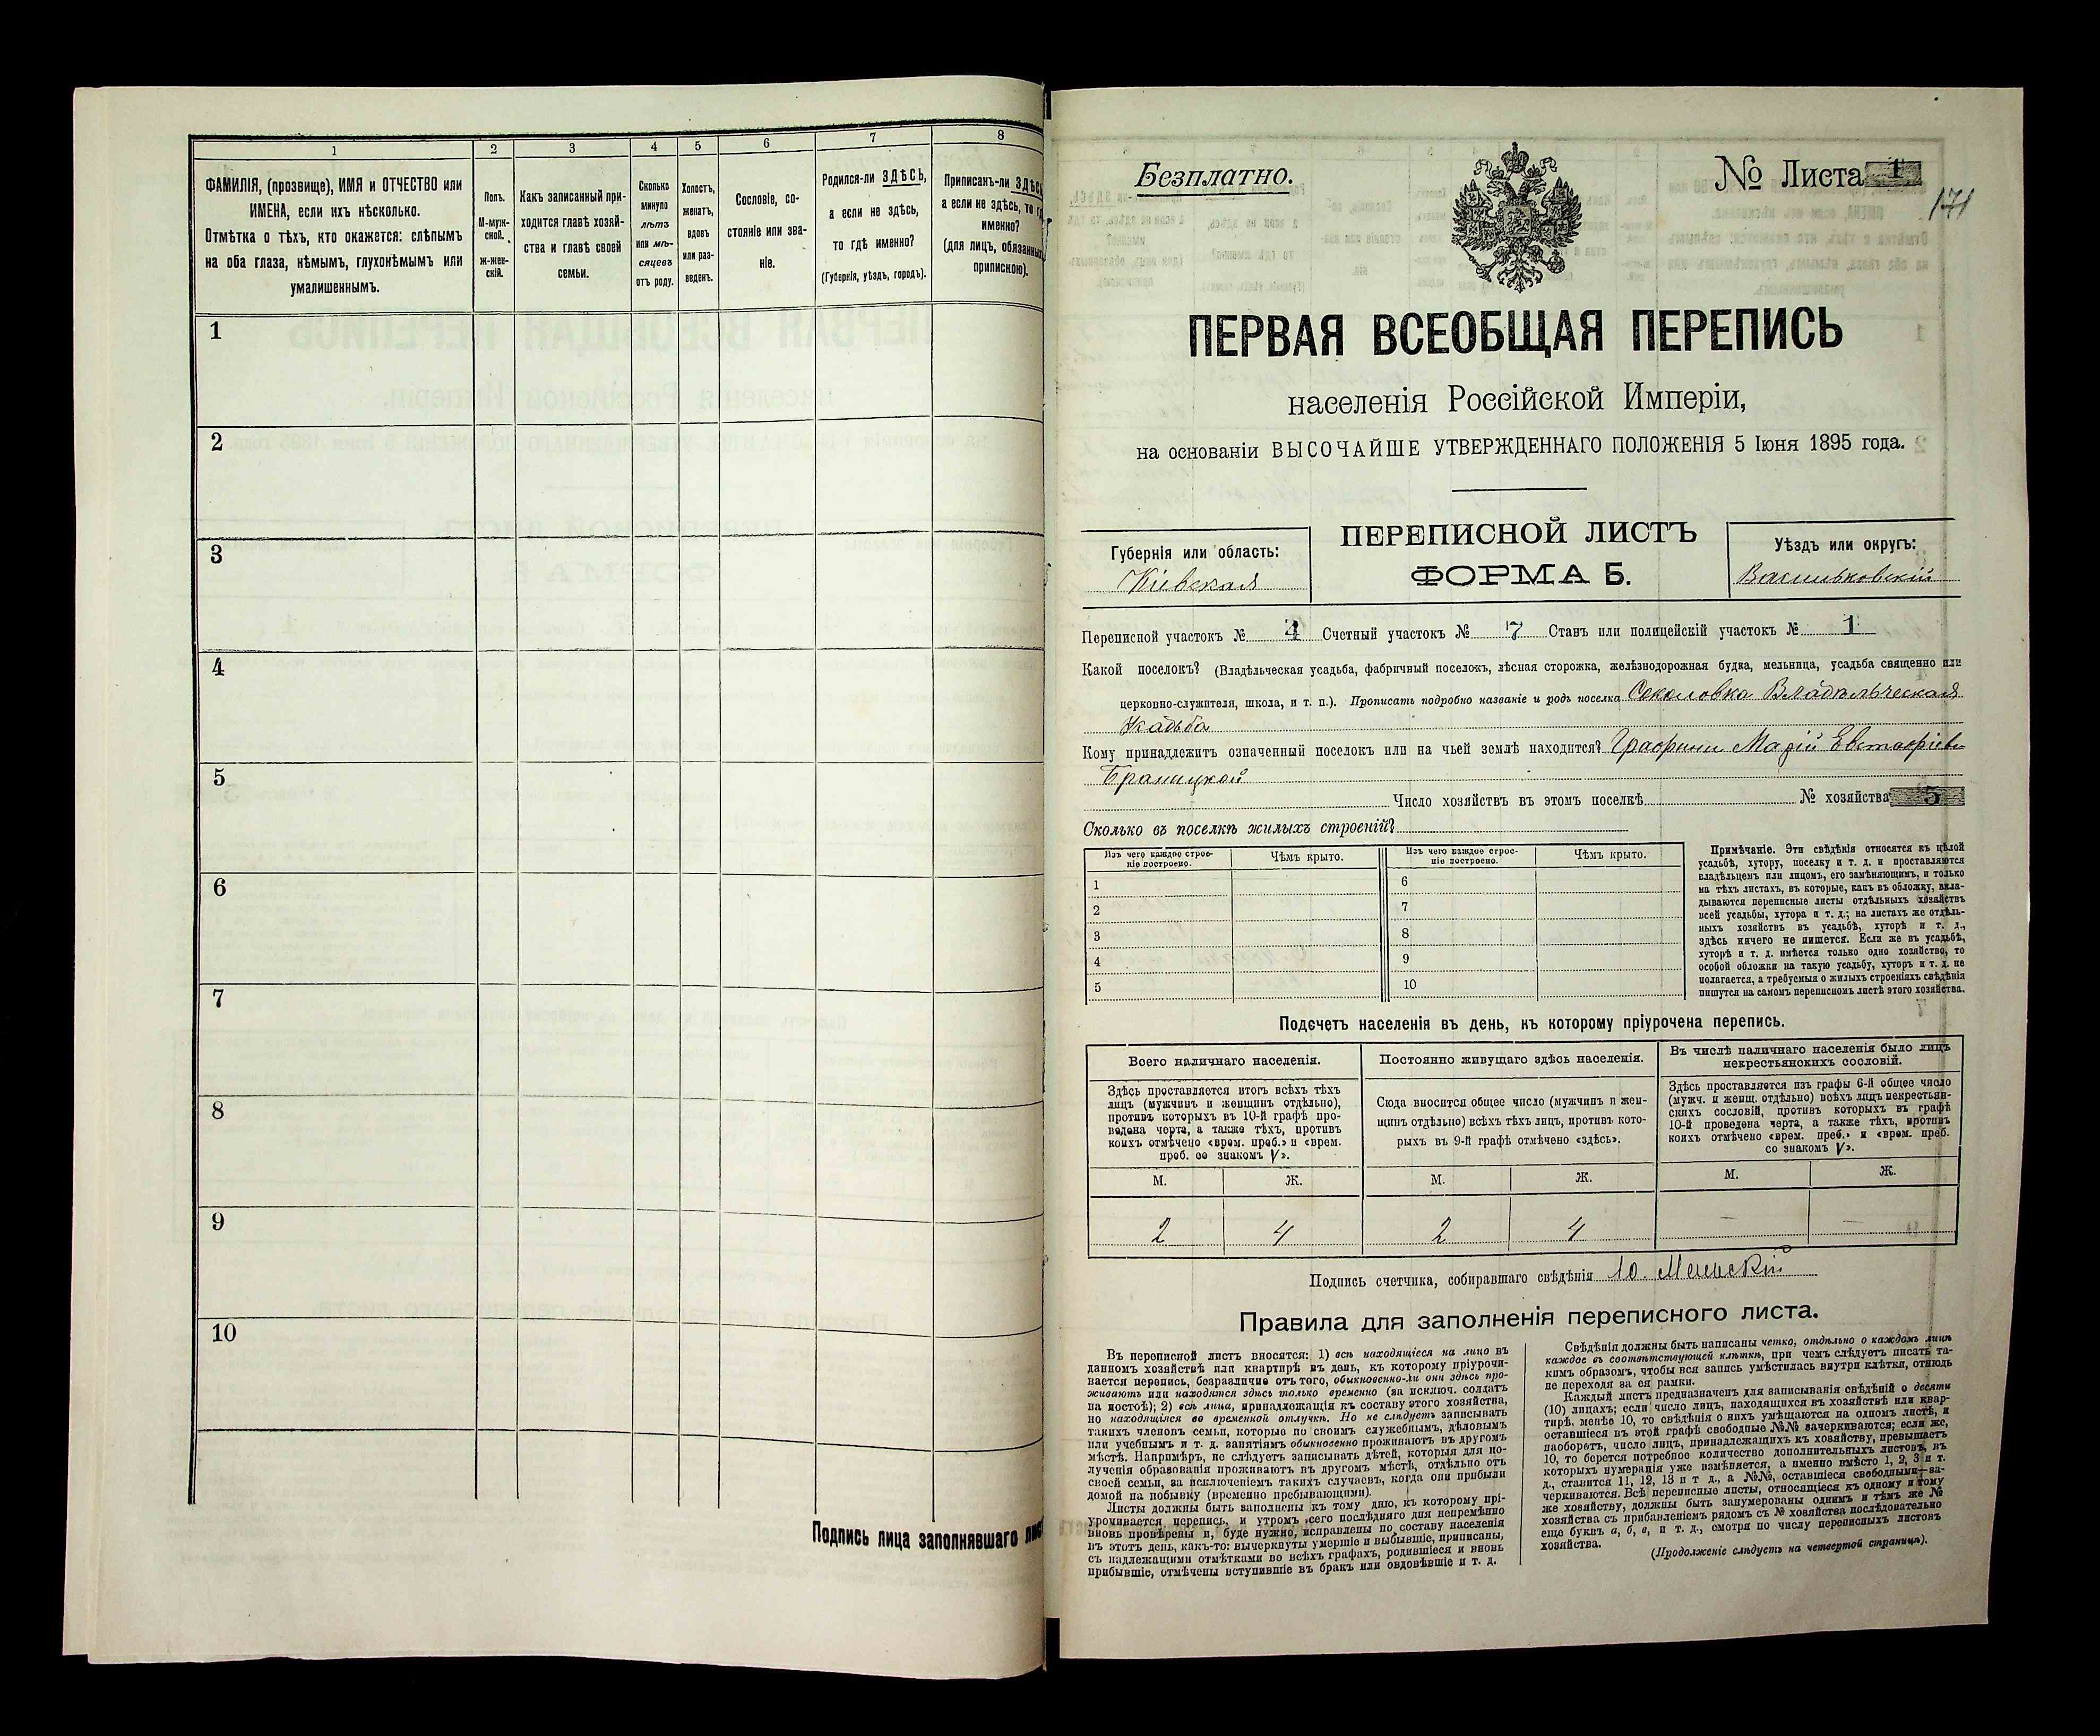 1
ФАМИЛІЯ, (прозвище), ИМЯ и ОТЧЕСТВО или
ИМЕНА, если ихъ нѣсколько.
Отмѣтка о тѣхъ, кто окажется: слѣпымъ
на оба глаза, нѣмымъ, глухонѣмымъ или
умалишеннымъ.
2
Полъ.
М-муж-
ской.
ж-жен-
скій.
3
Какъ записанный при-
ходится главѣ хозяй-
ства и главѣ своей
семьи.
4
Сколько
минуло
лѣтъ
или мѣ-
сяцевъ
отъ роду.
5
Холостъ,
женатъ,
вдовъ
или раз-
веденъ.
6
Сословіе, со-
стояніе или зва-
ніе.
7
Родился-ли ЗДѢСЬ,
а если не здѣсь,
то гдѣ именно?
(Губернія, уѣздъ, городъ).
8
Приписанъ-ли ЗДѢСЬ
а если не здѣсь, то
именно?
(для лицъ, обязанныхъ
припискою).
1
2
3
4
5
6
7
8
9
10
Подпись лица заполнявшаго
Безплатно.
№ Листа 1
171
ПЕРВАЯ ВСЕОБЩАЯ ПЕРЕПИСЬ
населенія Россійской Имперіи,
на основаніи ВЫСОЧАЙШЕ УТВЕРЖДЕННАГО ПОЛОЖЕНІЯ 5 Іюня 1895 года.
Губернія или область:
Кіевская
ПЕРЕПИСНОЙ ЛИСТЪ
ФОРМА Б.
Уѣздъ или округъ:
Васильковскій
Переписной участокъ № 4 Счетный участокъ № 7 Станъ или полицейскій участокъ № 1
Какой поселокъ? (Владѣльческая усадьба, фабричный поселокъ, лѣсная сторожка, желѣзнодорожная будка, мельница, усадьба священно или
церковно-служителя, школа, и т. п.). Прописать подробно названіе и родъ поселка Соколовка Владѣльческая
Усадьба
Кому принадлежитъ означенный поселокъ или на чьей землѣ находится? Графини Маріи Евстафіевн
Браницкой
Число хозяйствъ въ этомъ поселкѣ № хозяйства 5
Сколько въ поселкѣ жилыхъ строеній?
Изъ чего каждое строе-
ніе построено.
Чѣмъ крыто.
Изъ чего каждое строе-
ніе построено.
Чѣмъ крыто.
1 6
2 7
3 8
4 9
5 10
Примѣчаніе. Эти свѣдѣнія относятся къ цѣлой
усадьбѣ, хутору, поселку и т. д. и проставляются
владѣльцемъ или лицомъ, его замѣняющимъ, и только
на тѣхъ листахъ, въ которые, какъ въ обложку, вкла-
дываются переписные листы отдѣльныхъ хозяйствъ
всей усадьбы, хутора и т. д.; на листахъ же отдѣль-
ныхъ хозяйствъ въ усадьбѣ, хуторѣ и т. д.,
здѣсь ничего не пишется. Если же въ усадьбѣ,
хуторѣ и т. д. имѣется только одно хозяйство, то
особой обложки на такую усадьбу, хуторъ и т. д. не
полагается, а требуемыя о жилыхъ строеніяхъ свѣдѣнія
пишутся на самомъ переписномъ листѣ этого хозяйства.
Подсчетъ населенія въ день, къ которому пріурочена перепись.
Всего наличнаго населенія.
Здѣсь проставляется итогъ всѣхъ тѣхъ
лицъ (мужчинъ и женщинъ отдѣльно),
противъ которыхъ въ 10-й графѣ про-
ведена черта, а также тѣхъ, противъ
коихъ отмѣчено «врем. преб.» и «врем.
преб. со знакомъ V».
Постоянно живущаго здѣсь населенія.
Сюда вносится общее число (мужчинъ и жен-
щинъ отдѣльно) всѣхъ тѣхъ лицъ, противъ кото-
рыхъ въ 9-й графѣ отмѣчено «здѣсь».
Въ числѣ наличнаго населенія было лицъ
некрестьянскихъ сословій.
Здѣсь проставляется изъ графы 6-й общее число
(мужч. и женщ. отдѣльно) всѣхъ лицъ некрестьян-
скихъ сословій, противъ которыхъ въ графѣ
10-й проведена черта, а также тѣхъ, противъ
коихъ отмѣчено «врем. преб.» и «врем. преб.
со знакомъ V».
М. Ж. М. Ж. М. Ж.
2 4 2 4 — —
Подпись счетчика, собиравшаго свѣдѣнія Ю.
Правила для заполненія переписного листа.
Въ переписной листъ вносятся: 1) всѣ находящіеся на лицо въ
данномъ хозяйствѣ или квартирѣ въ день, къ которому пріурочи-
вается перепись, безразлично отъ того, обыкновенно-ли они здѣсь про-
живаютъ или находятся здѣсь только временно (за исключ. солдатъ
на постоѣ); 2) всѣ лица, принадлежащія къ составу этого хозяйства,
но находящіяся во временной отлучкѣ. Но не слѣдуетъ записывать
такихъ членовъ семьи, которые по своимъ служебнымъ, дѣловымъ
или учебнымъ и т. д. занятіямъ обыкновенно проживаютъ въ другомъ
мѣстѣ. Напримѣръ, не слѣдуетъ записывать дѣтей, которыя для по-
лученія образованія проживаютъ въ другомъ мѣстѣ, отдѣльно отъ
своей семьи, за исключеніемъ такихъ случаевъ, когда они прибыли
домой на побывку (временно пребывающими).
Листы должны быть заполнены къ тому дню, къ которому прі-
урочивается перепись, и утромъ сего послѣдняго дня непремѣнно
вновь провѣрены и, буде нужно, исправлены по составу населенія
въ этотъ день, какъ-то: вычеркнуты умершіе и выбывшіе, приписаны,
съ надлежащими отмѣтками во всѣхъ графахъ, родившіеся и вновь
прибывшіе, отмѣчены вступившіе въ бракъ или овдовѣвшіе и т. д.
Свѣдѣнія должны быть написаны четко, отдѣльно о каждомъ лицѣ
каждое въ соотвѣтствующей клѣткѣ, при чемъ слѣдуетъ писать та-
кимъ образомъ, чтобы вся запись умѣстилась внутри клѣтки, отнюдь
не переходя за ея рамки.
Каждый листъ предназначенъ для записыванія свѣдѣній о десяти
(10) лицахъ; если число лицъ, находящихся въ хозяйствѣ или квар-
тирѣ, менѣе 10, то свѣдѣнія о нихъ умѣщаются на одномъ листѣ, и
оставшіеся въ этой графѣ свободные №№ зачеркиваются; если же,
наоборотъ, число лицъ, принадлежащихъ къ хозяйству, превышаетъ
10, то берется потребное количество дополнительныхъ листовъ, въ
которыхъ нумерація уже измѣняется, а именно вмѣсто 1, 2, 3 и т.
д., ставится 11, 12, 13 и т д., а №№, оставшіеся свободными—за-
черкиваются. Всѣ переписные листы, относящіеся къ одному и тому
же хозяйству, должны быть занумерованы однимъ и тѣмъ же №
хозяйства съ прибавленіемъ рядомъ съ № хозяйства послѣдовательно
еще буквъ а, б, в, и т. д., смотря по числу переписныхъ листовъ
хозяйства.
(Продолженіе слѣдуетъ на четвертой страницѣ).